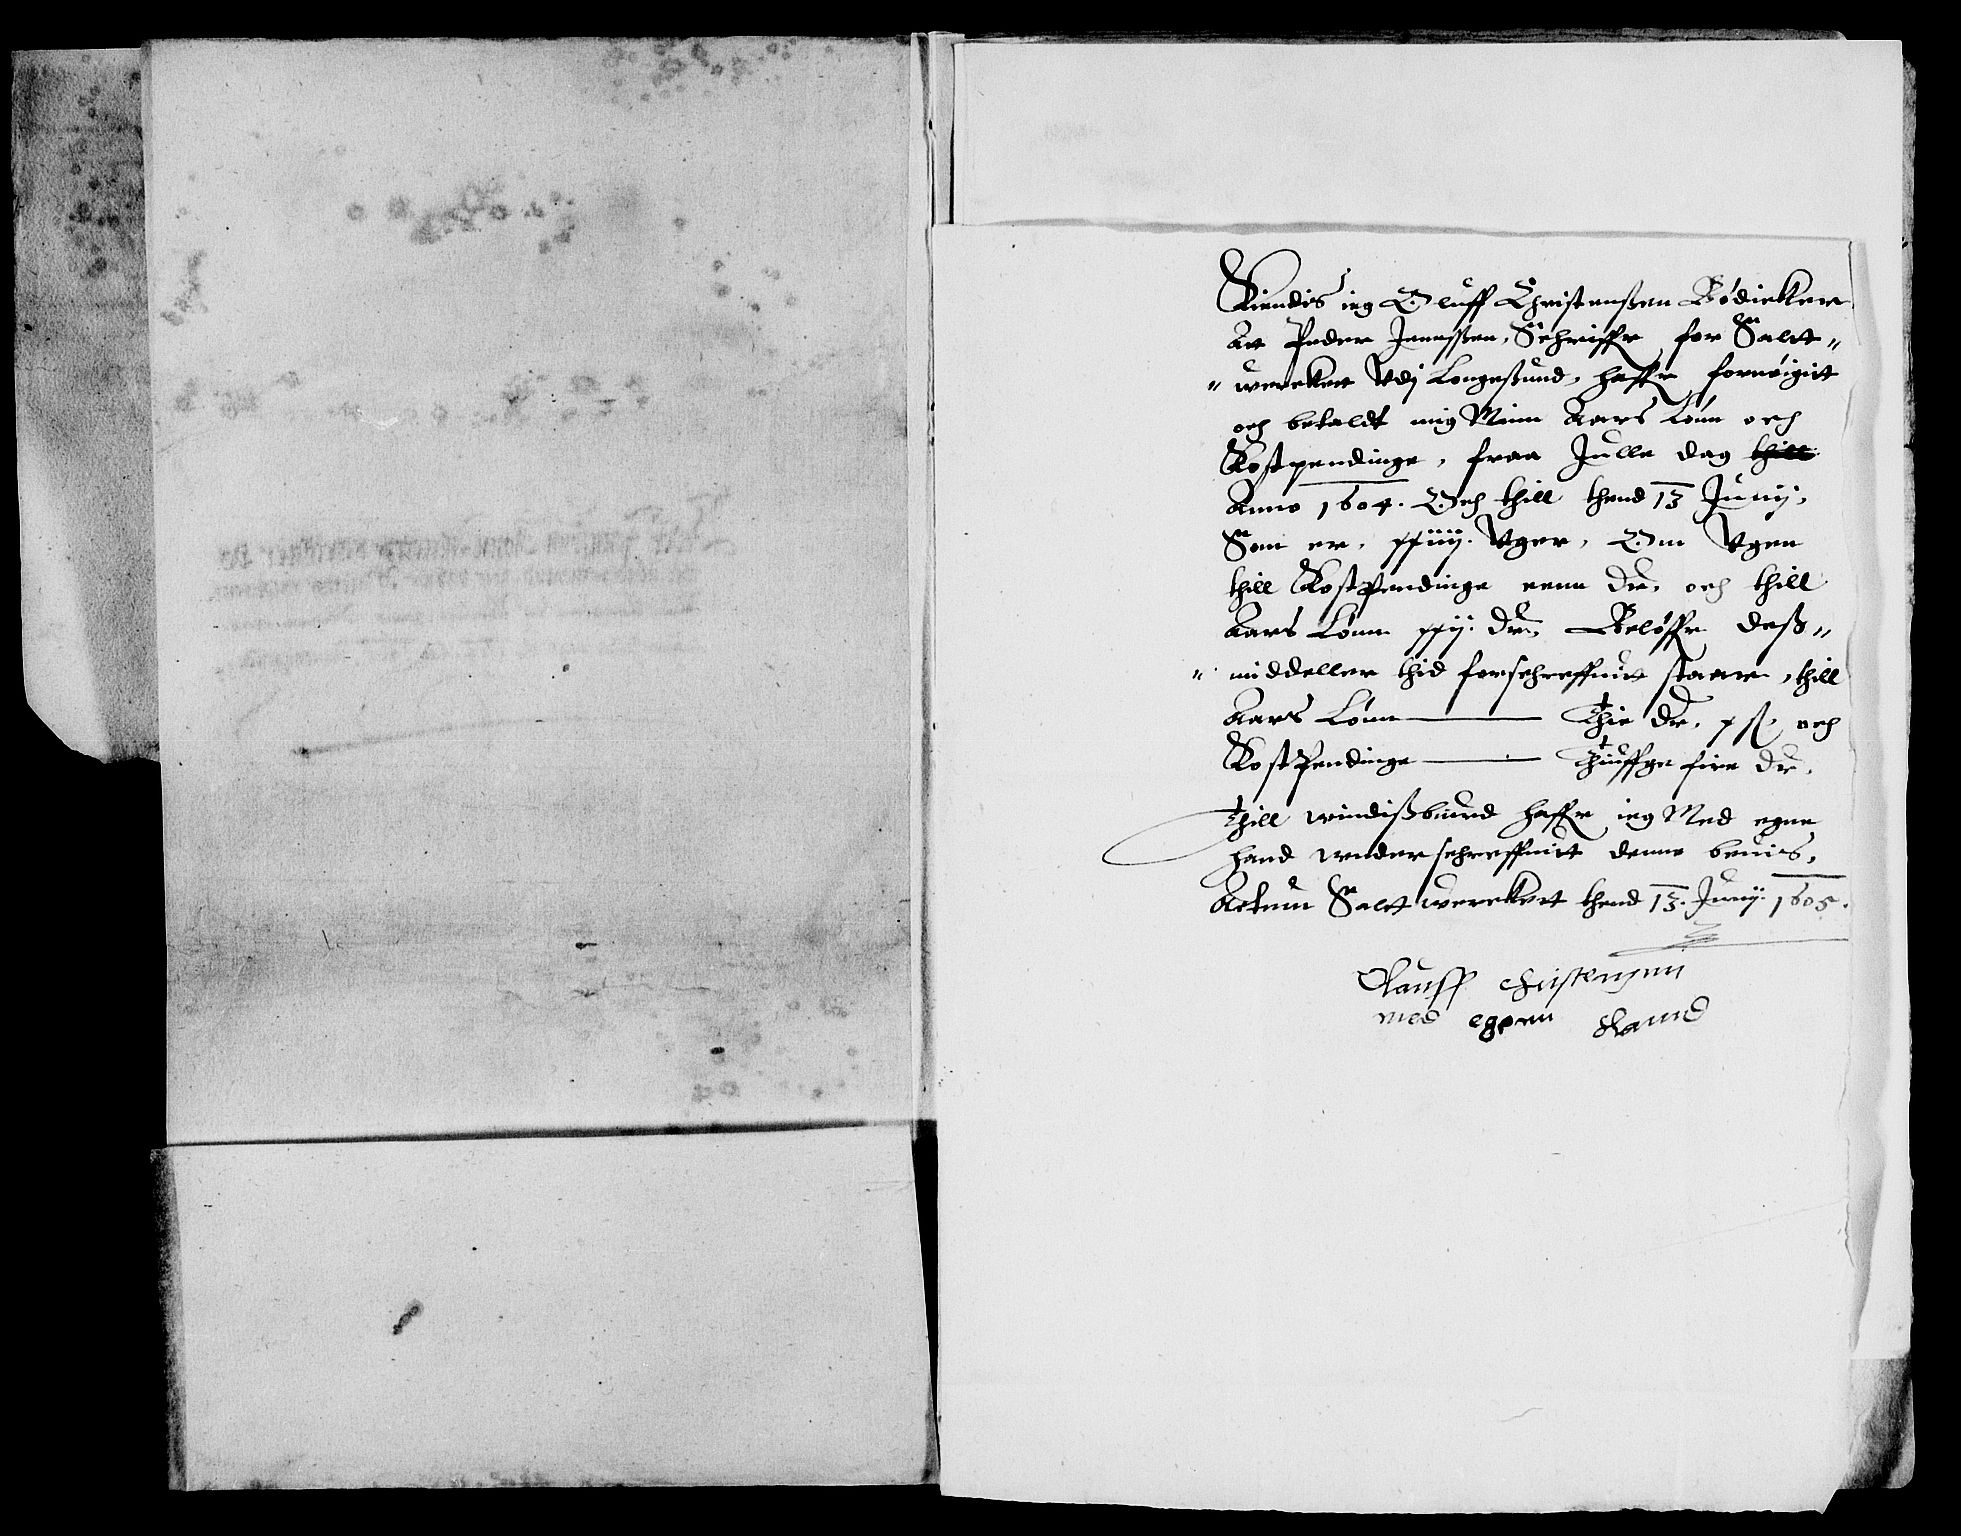 Kiendis ieg Oluff Christenßen Bødickere
Att Peder Jenssen, Schriffr for Salt„
„ werckett Vdj Longeßund, haffr fornøigitt
och betaldt mig Minn Aars Lønn och
Kostpendinge, fraa Julle dag
Anno 1604. Och thill thend 13 Junij,
Som er, xxiiij. Vger, Om Vgen
thill Kostpendinge enn dr, och thill
Aars Lønn xxij. dr, Beløffr deß„
„ middeller thid forschreffuit staar, thill
Aars Lønn — Thie dr, och
Kostpendinge — Thiuffge fire dr.
Thill windißbiurd haffr ieg Med egne
hand wnderschreffuitt denne beuis,
Actum Saltwerckett thend 13. Junij. 1605.
Olauff christensenn
med egenn Hannd